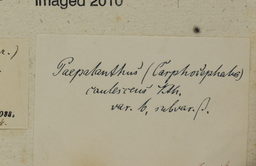 Imaged 2010
Paepalanthus (Carphocephalus)
caulescens Kth.
var. b, subvar. β.